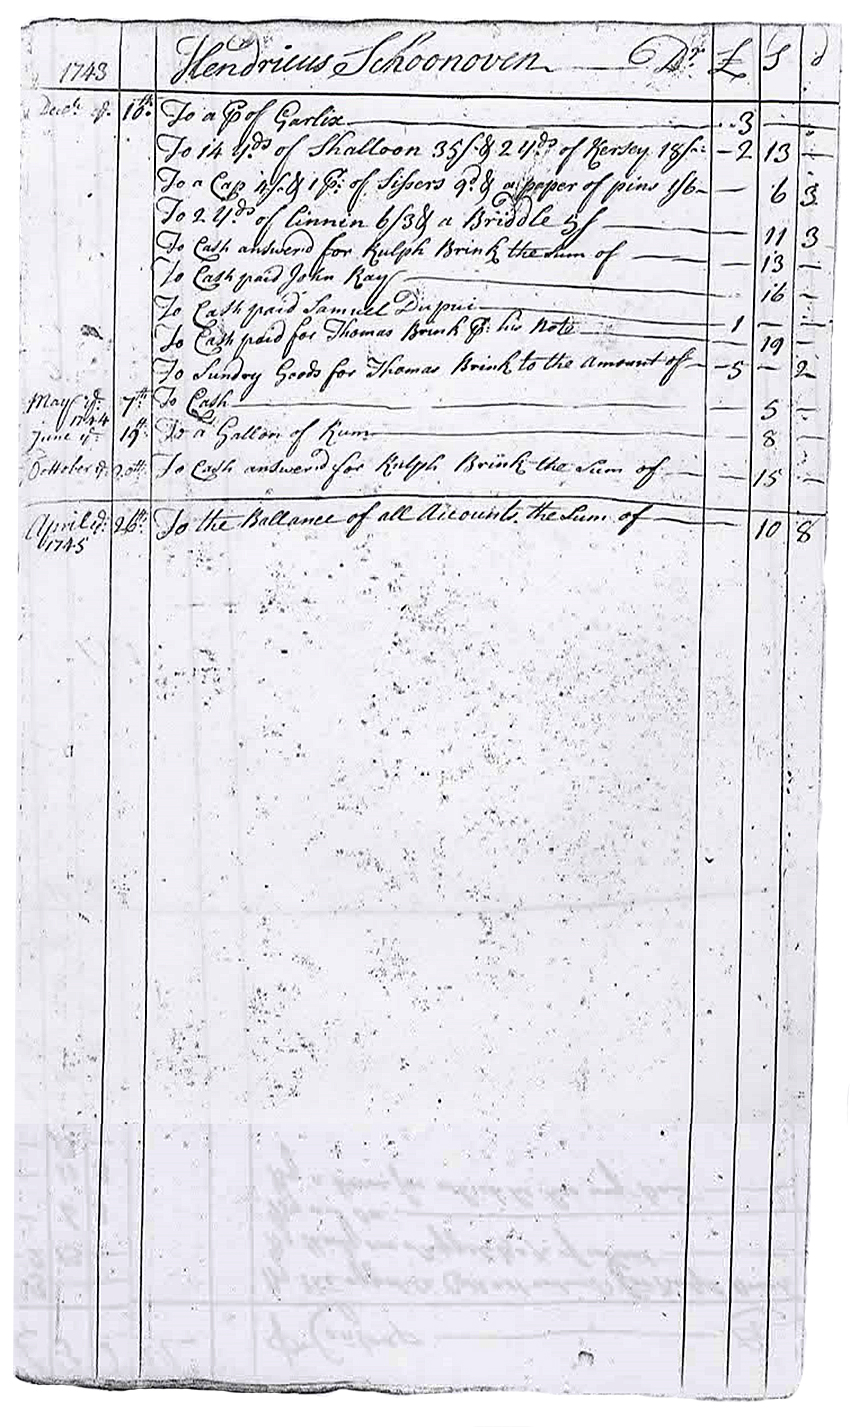 1743 Hendricus Schoonoven Dr. £ S d
Decbr. ye. 16th. To a ps of Garlix 3 — —
To 14 yds of Shalloon 35/ & 2 yds of Kersey 18/ 2 13 —
To a Cap 4/ & 1 pr: of Sissers 9d. & a paper of pins 1/6 — 6 3
To 2 yds of linnin 6/3 & a Briddle 5/ 11 3
To Cash answerd for Rulph Brink the sum of 13 —
To Cash paid John Kay 16 —
To Cash paid Samuel Dupui 1 — —
To Cash paid for Thomas Brink pr: his Note 19 —
To Sundry Goods for Thomas Brink to the Amount of 5 — 2
May ye. 7th. To Cash 5 —
1744
June ye. 19th. To a Gallon of Rum 8 —
Octtober ye. 20th. To Cash answerd for Rulph Brink the Sum of 15 —
April ye. 26th. To the Ballance of all Accounts the Sum of 10 8
1745